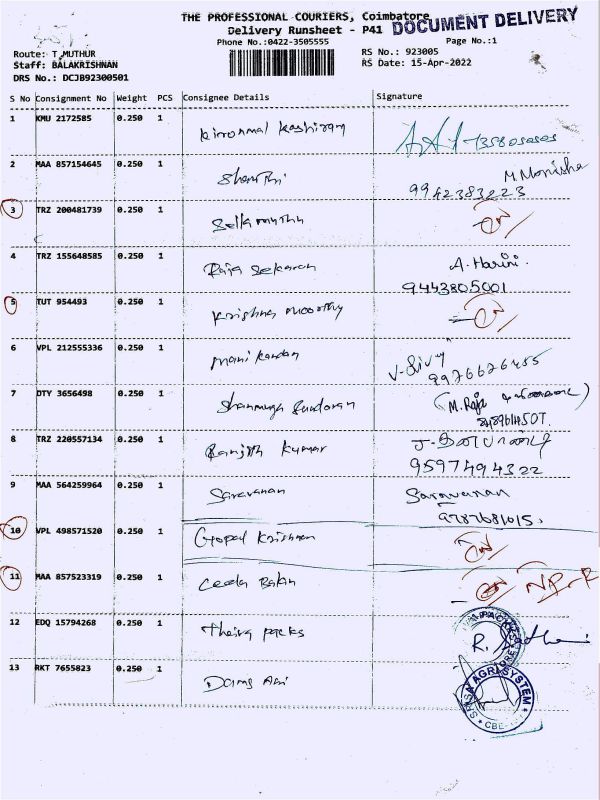 THE PROFESSIONAL COURIERS, Coimbatore
DOCUMENT DELIVERY
Delivery Runsheet - P41
Phone No.:0422-3505555
Page No.:1
Route: T,MUTHUR
RS No.: 923005
Staff: BALAKRISHNAN
RS Date: 15-Apr-2022
DRS No.: DCJB92300501
S No Consignment No Weight PCS Consignee Details Signature
1 KMU 2172585 0.250 1
2 MAA 857154645 0.250 1 Shanthi M. Monisha
9942383223
3 TRZ 200481739 0.250 1 Sella muthu
4 TRZ 155648585 0.250 1 Raja Sekaran A. Harini.
9443805001
5 TUT 954493 0.250 1 Krishna moorthy
6 VPL 212555336 0.250 1 Manikandan
9976626455
7 DTY 3656498 0.250 1 Shanmuga Sundaram (M. Raja
8 TRZ 220557134 0.250 1 Ranjith Kumar
9597494322
9 MAA 564259964 0.250 1 Saravanan Saravanan
9787681015.
10 VPL 498571520 0.250 1 Gopal Krishnan
11 MAA 857523319 0.250 1
12 EDQ 15794268 0.250 1
13 RKT 7655823 0.250 1
AGRI SYSTEM
CBE